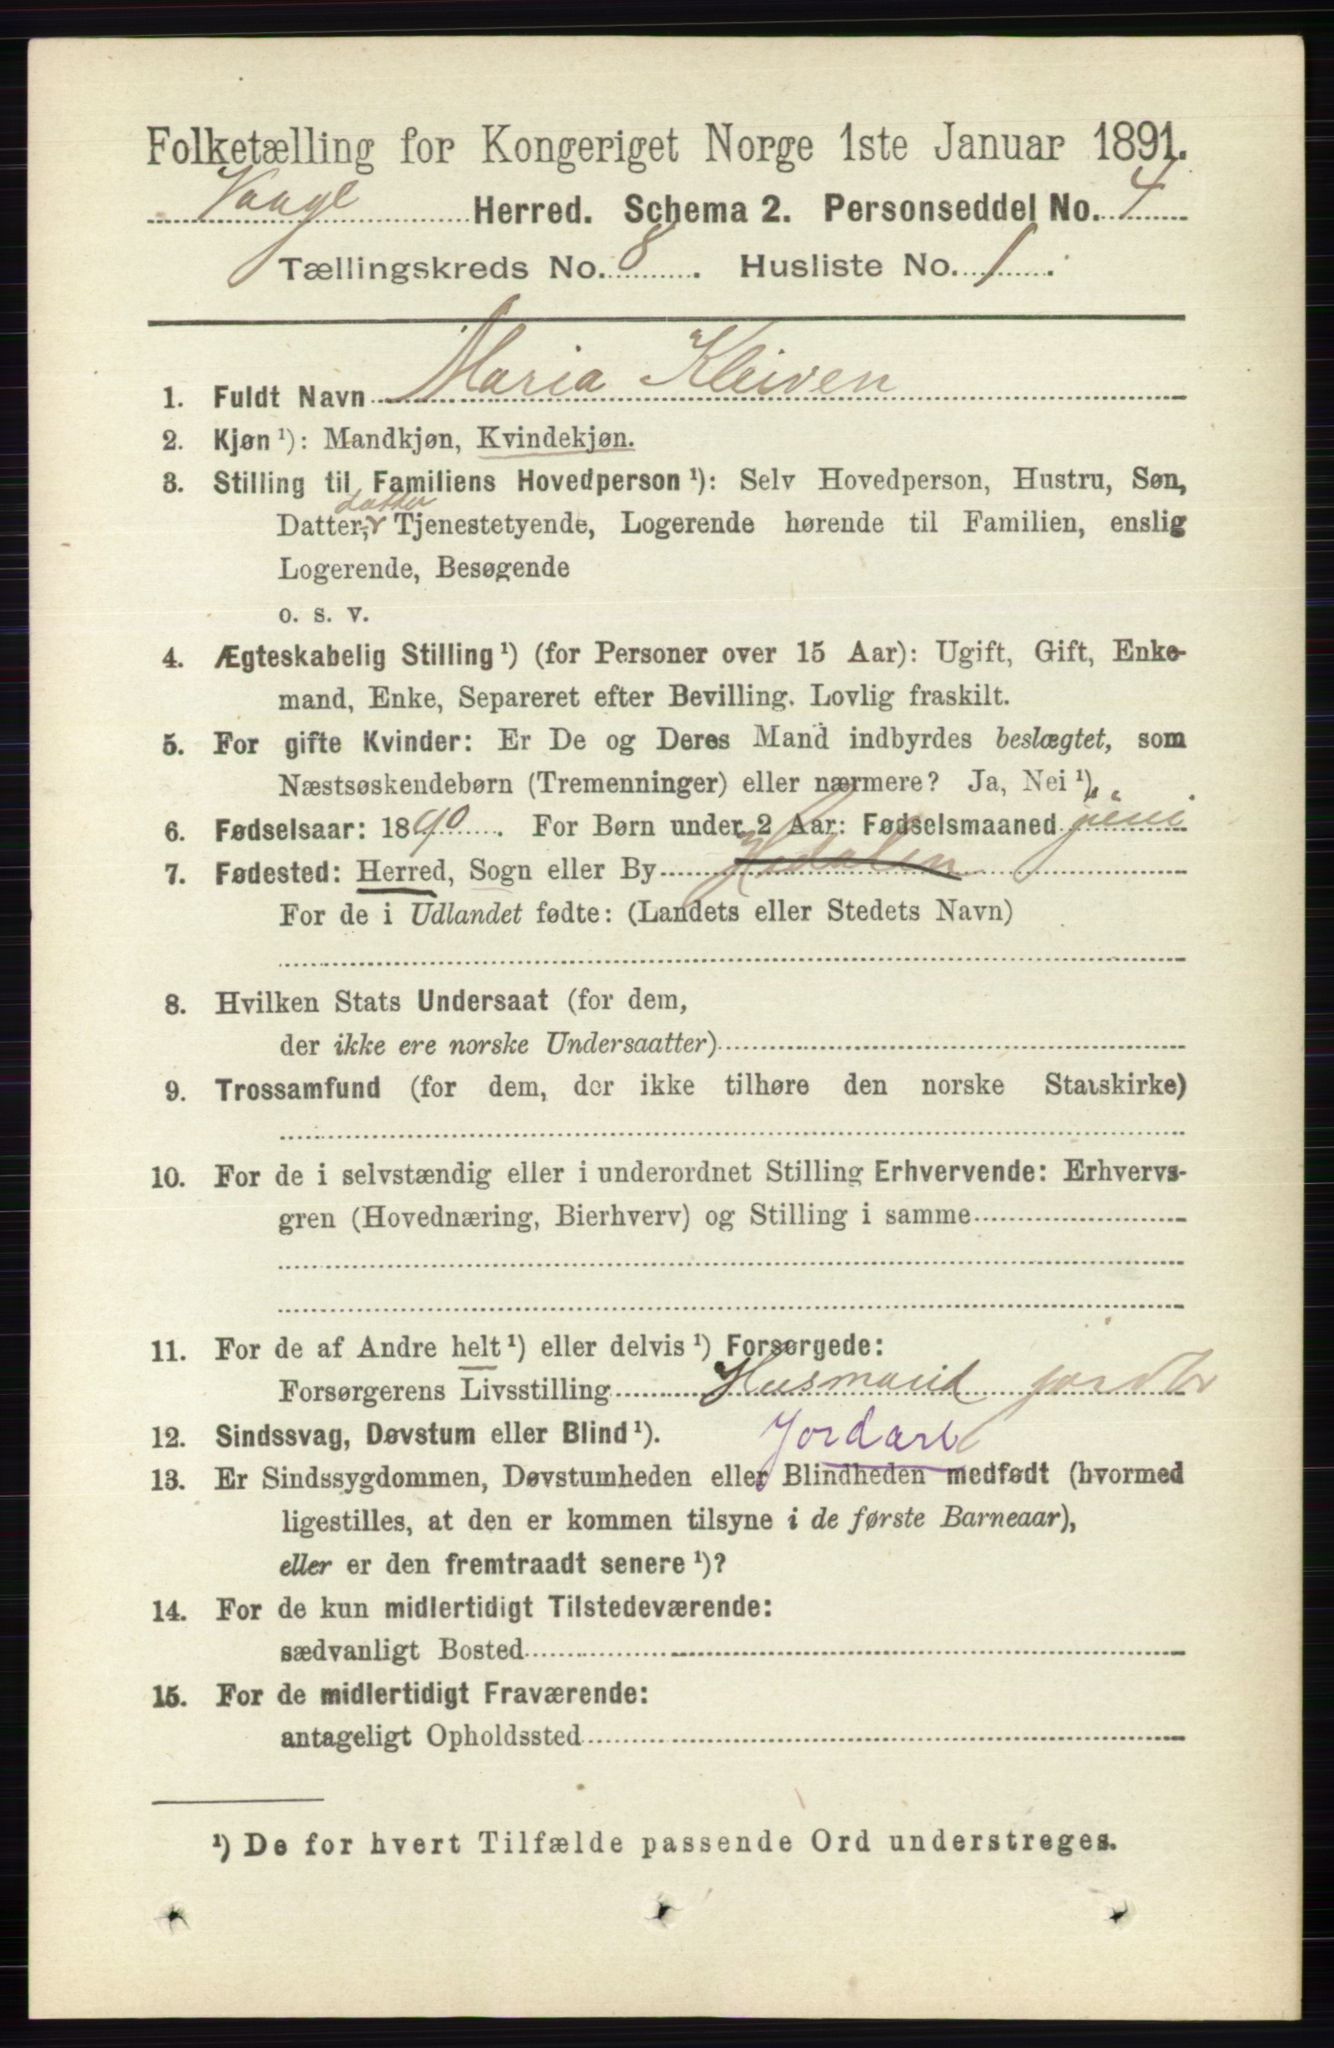 Folketælling for Kongeriget Norge 1ste Januar 1891.
Vaage Herred. Schema 2. Personseddel No. 4
Tællingskreds No. 8. Husliste No. 1.
1. Fuldt Navn Maria Kleiven
2. Kjøn ¹): Mandkjøn, Kvindekjøn.
3. Stilling til Familiens Hovedperson ¹): Selv Hovedperson, Hustru, Søn,
datter
Datter, Tjenestetyende, Logerende hørende til Familien, enslig
Logerende, Besøgende
o. s. v.
4. Ægteskabelig Stilling ¹) (for Personer over 15 Aar): Ugift, Gift, Enke-
mand, Enke, Separeret efter Bevilling. Lovlig fraskilt.
5. For gifte Kvinder: Er De og Deres Mand indbyrdes beslægtet, som
Næstsøskendebørn (Tremenninger) eller nærmere? Ja, Nei ¹).
6. Fødselsaar: 1890. For Børn under 2 Aar: Fødselsmaaned juni
7. Fødested: Herred, Sogn eller By Hedalen
For de i Udlandet fødte: (Landets eller Stedets Navn)
8. Hvilken Stats Undersaat (for dem,
der ikke ere norske Undersaatter)
9. Trossamfund (for dem, der ikke tilhøre den norske Statskirke)
10. For de i selvstændig eller i underordnet Stilling Erhvervende: Erhvervs-
gren (Hovednæring, Bierhverv) og Stilling i samme
11. For de af Andre helt ¹) eller delvis ¹) Forsørgede:
Forsørgerens Livsstilling Husmand
Jordarb
12. Sindssvag, Døvstum eller Blind ¹).
13. Er Sindssygdommen, Døvstumheden eller Blindheden medfødt (hvormed
ligestilles, at den er kommen tilsyne i de første Barneaar),
eller er den fremtraadt senere ¹)?
14. For de kun midlertidigt Tilstedeværende:
sædvanligt Bosted
15. For de midlertidigt Fraværende:
antageligt Opholdssted
¹) De for hvert Tilfælde passende Ord understreges.